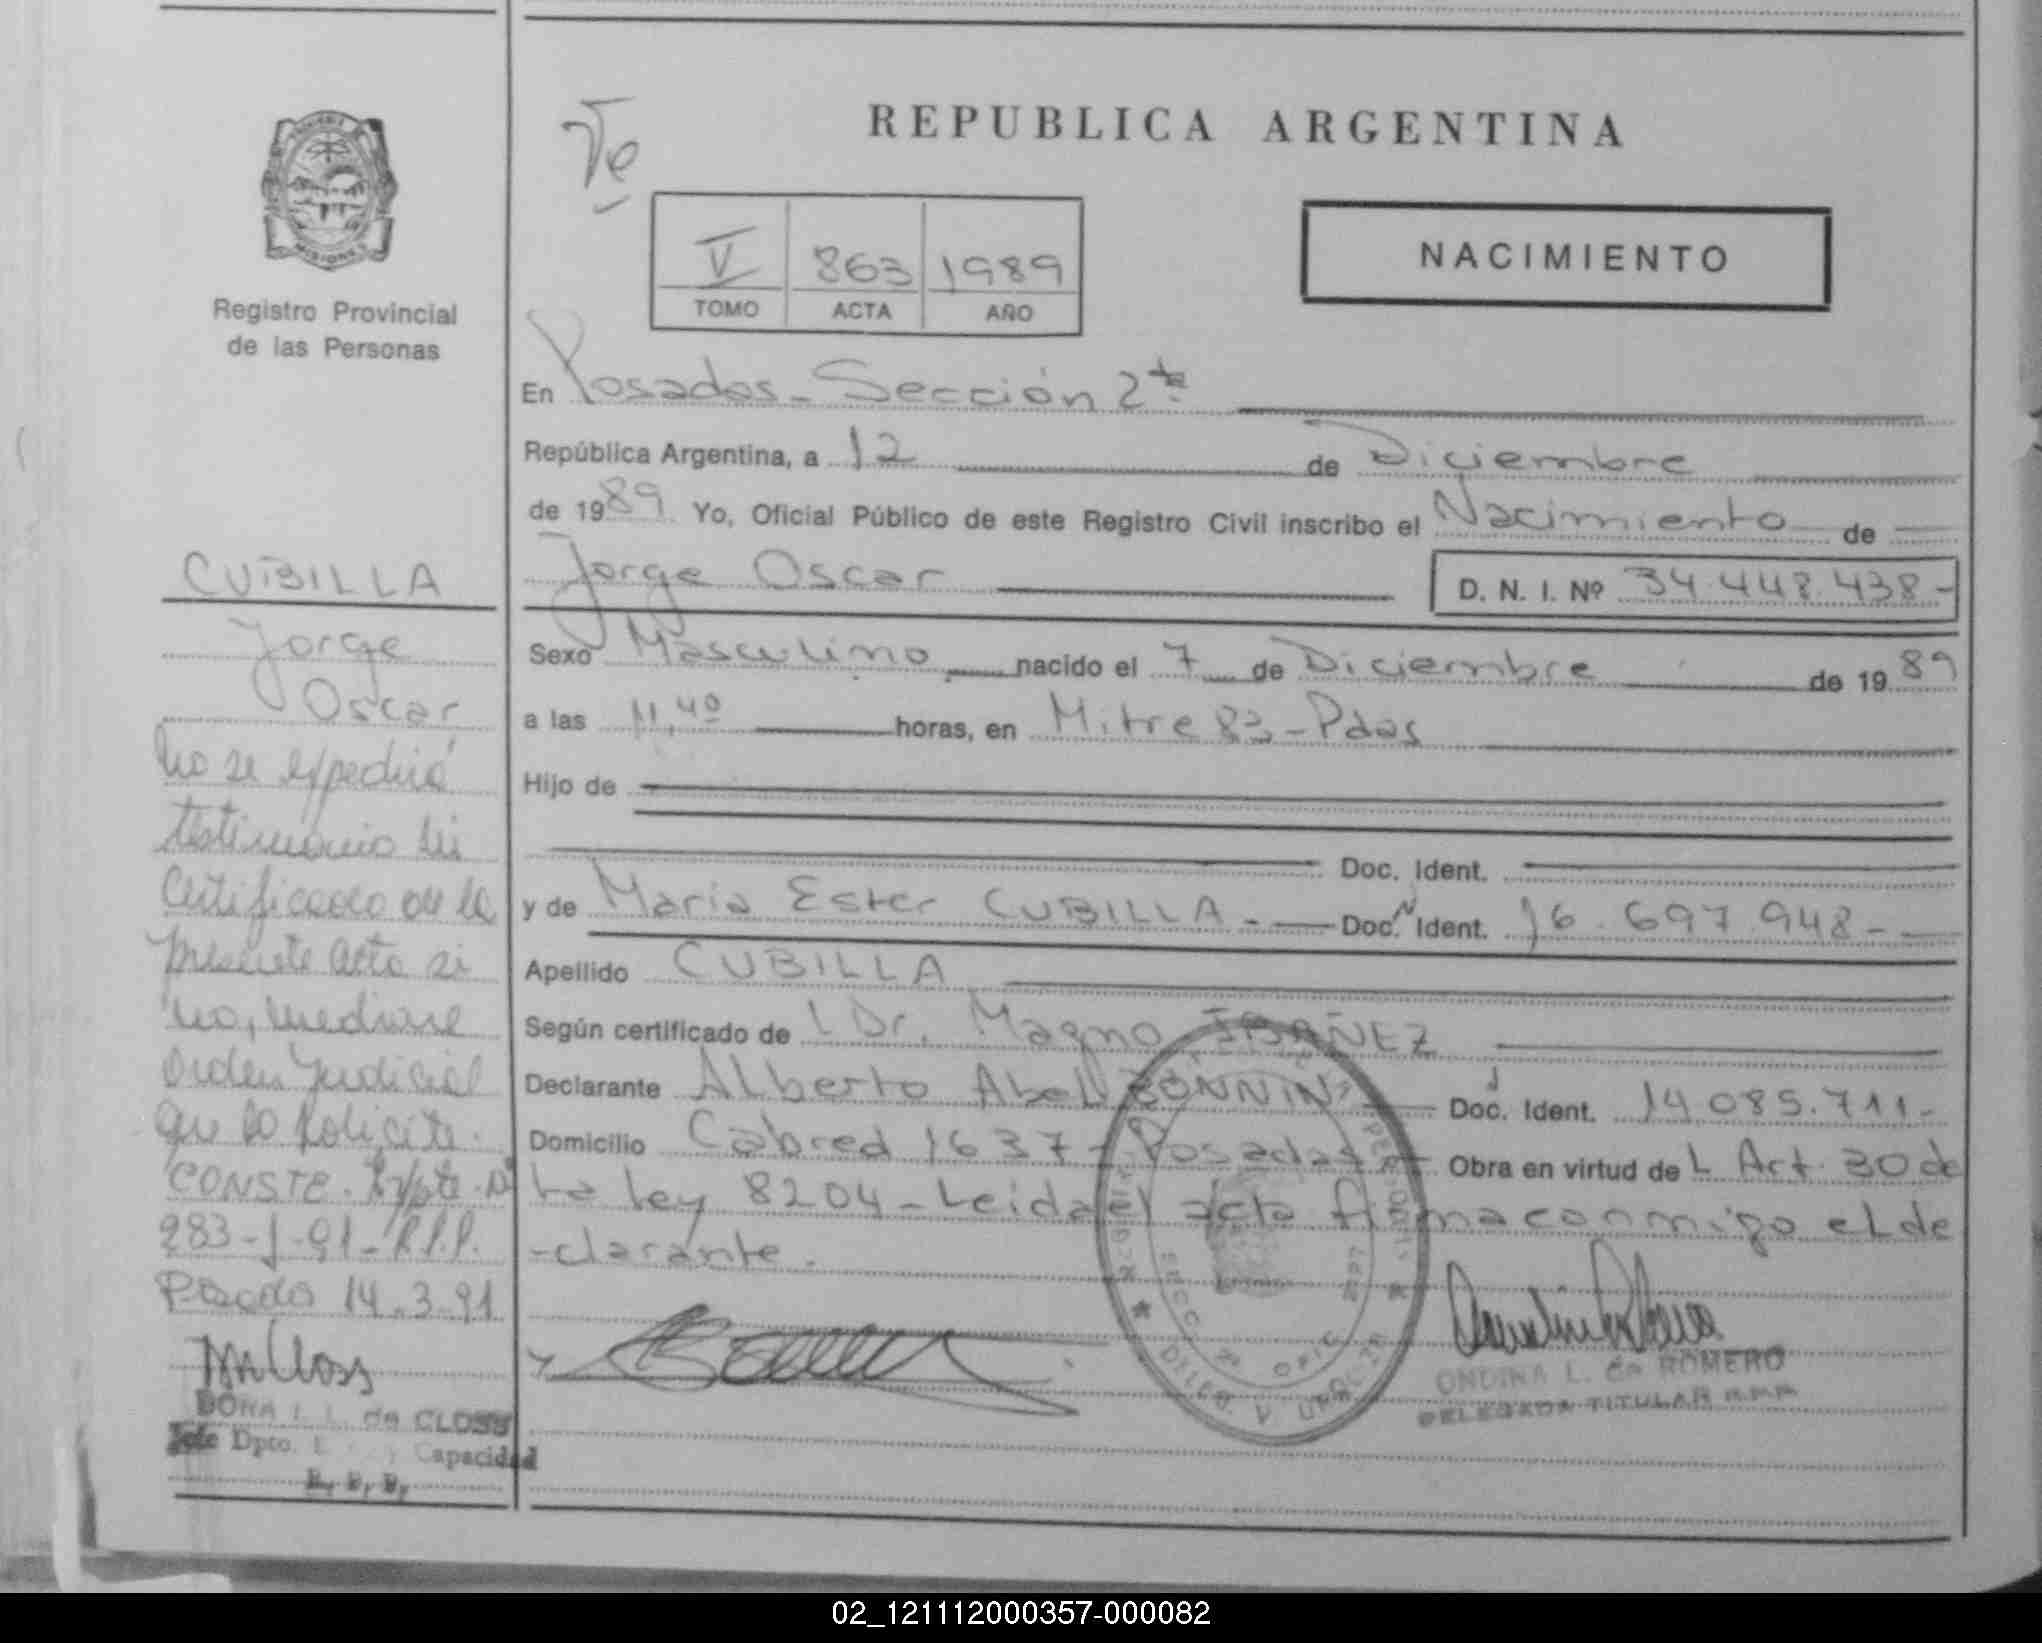 REPUBLICA ARGENTINA
Ve
V 863 1989
TOMO ACTA AÑO
NACIMIENTO
MISIONES
Registro Provincial
de las Personas
En Posadas - Sección 2da
República Argentina, a 12 de Diciembre
de 1989 Yo, Oficial Público de este Registro Civil inscribo el Nacimiento de
Jorge Oscar D. N. I. Nº 34.448.438-
Sexo Masculino nacido el 7 de Diciembre de 1989
a las 11,40 horas, en Mitre 83 - Pdas
Hijo de
Doc. Ident.
y de Maria Ester CUBILLA - Doc. Ident. 16.697.948-
Apellido CUBILLA
Según certificado de L Dr. Magno IBAÑEZ
Declarante Alberto Abel BONNIN Doc. Ident. 14.085.711-
Domicilio Cabred 1637 - Posadas - Obra en virtud de L Art. 30 de
La ley 8204 - Leida el acta firma conmigo el de
-clarante.
ONDINA L. de ROMERO
DELEGADA TITULAR
CUBILLA
Jorge
Oscar
No se expedirá
testimonio ni
Certificado de la
presente acta si
no, mediare
Orden Judicial
que lo solicite.
CONSTE. Expte. Nº
283-J-91-R.P.P.
Posadas 14.3.91
de CLOSS
Jefe Dpto. Capacidad
R. P. P.
02_121112000357-000082